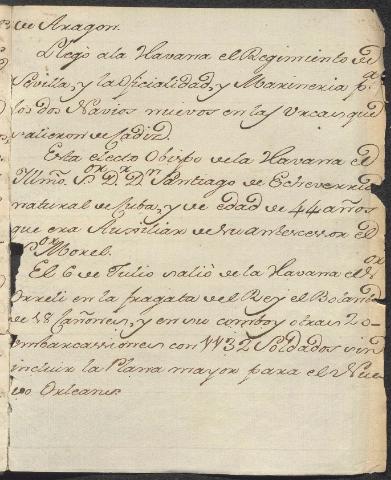 de Aragon.
Llegò ala Havana el Regimiento de
Sevilla, y la Oficialidad, y Marineria pª
los dos Navios nuevos en las Urcas que
salieron de Cadiz
Esta electo Obispo de la Havana el
Illmo. Sor. Dr. Dn. Santiago de Echeverria
natural de Cuba, y de edad de 44 años
que era Auxiliar de su antescessor el
Sor Morel.
El 6 de Julio saliò de la Havana el Sor
Orreli en la fragata del Rey el Boland
de 18 Cañones, y en su comboy otras 20
embarcassiones con 1132 Soldados sin
incluir la Plana mayor para el Nue
vo Orleans